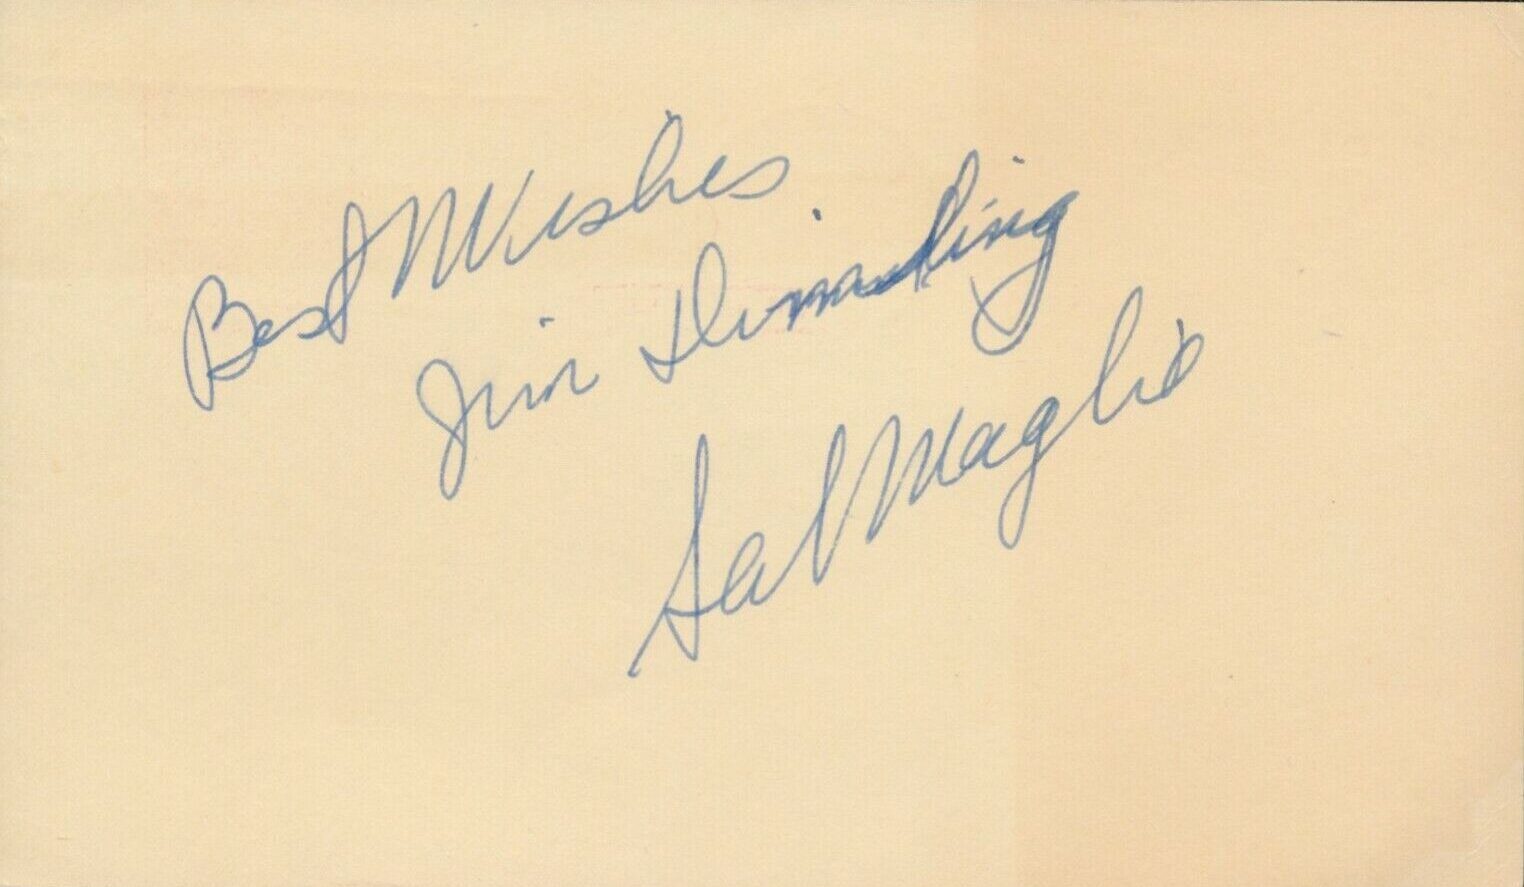 Best Wishes
Jim
Sal Maglie